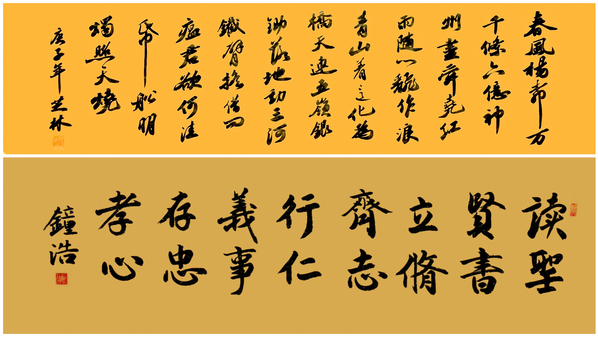 春風楊柳万
千條六億神
州盡舜堯紅
雨隨心翻作浪
青山着意化為
橋天連五嶺銀
鋤落地動三河
鐵臂搖借問
瘟君欲何往
紙船明
燭照天燒
庚子年芝林
读聖
賢書
立脩
齊志
行仁
義事
存忠
孝心
鐘浩